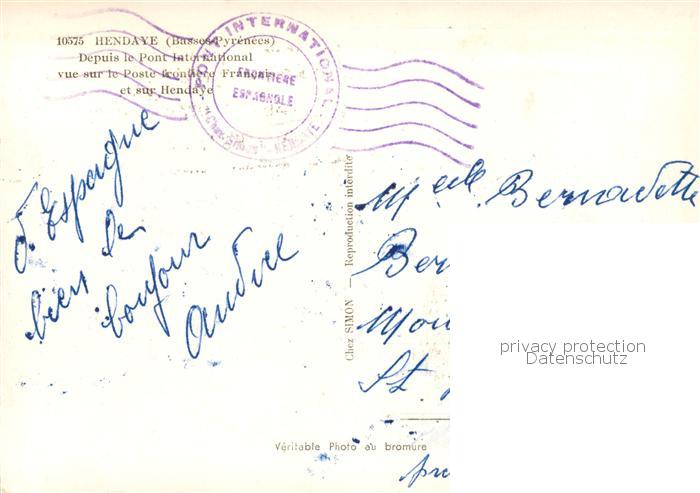 10575 HENDAYE (Basses-Pyrénées)
Depuis le Pont International
vue sur le Poste frontière Français
et sur Hendaye
PONT INTERNATIONAL
FRONTIÈRE
ESPAGNOLE
HENDAYE
d'Espagne
bien le
bonjour
André
Chez SIMON — Reproduction interdite
Melle Bernadette
Ber
Mou
St
privacy protection
Datenschutz
Véritable Photo au bromure